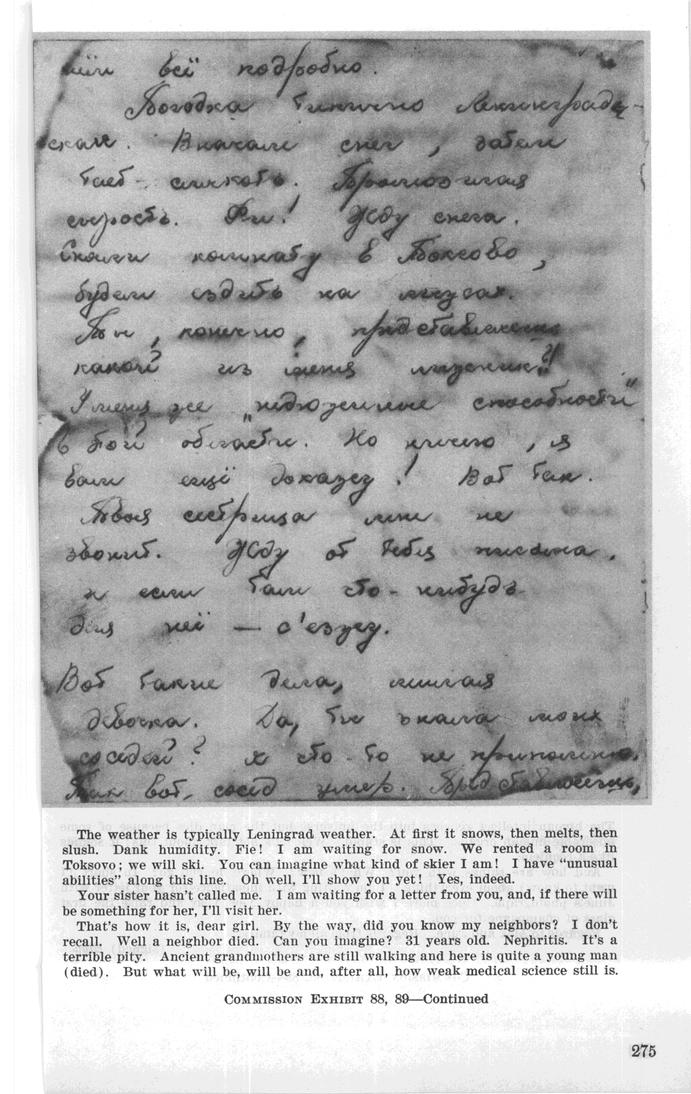 всё подробно.
Погодка типично Ленинградс-
ская. Вначале снег, затем
тает - слякоть. Промозглая
сырость. Фи! Жду снега.
Сняли комнату в Токсово,
будем ездить на лыжах.
Ты, конечно, представляешь
какой из меня лыжник?!
У меня же „недюжинные способности"
в той области. Но ничего, я
вам ещё докажу! Вот так.
Твоя сестрица мне не
звонит. Жду от тебя письма,
и если там что-нибудь
для неё — с'езжу.
Вот такие дела, милая
девочка. Да, ты знала моих
соседей? я что-то не припомню.
Так вот, сосед умер. Представляешь,
The weather is typically Leningrad weather. At first it snows, then melts, then
slush. Dank humidity. Fie! I am waiting for snow. We rented a room in
Toksovo; we will ski. You can imagine what kind of skier I am! I have "unusual
abilities" along this line. Oh well, I'll show you yet! Yes, indeed.
Your sister hasn't called me. I am waiting for a letter from you, and, if there will
be something for her, I'll visit her.
That's how it is, dear girl. By the way, did you know my neighbors? I don't
recall. Well a neighbor died. Can you imagine? 31 years old. Nephritis. It's a
terrible pity. Ancient grandmothers are still walking and here is quite a young man
(died). But what will be, will be and, after all, how weak medical science still is.
COMMISSION EXHIBIT 88, 89—Continued
275